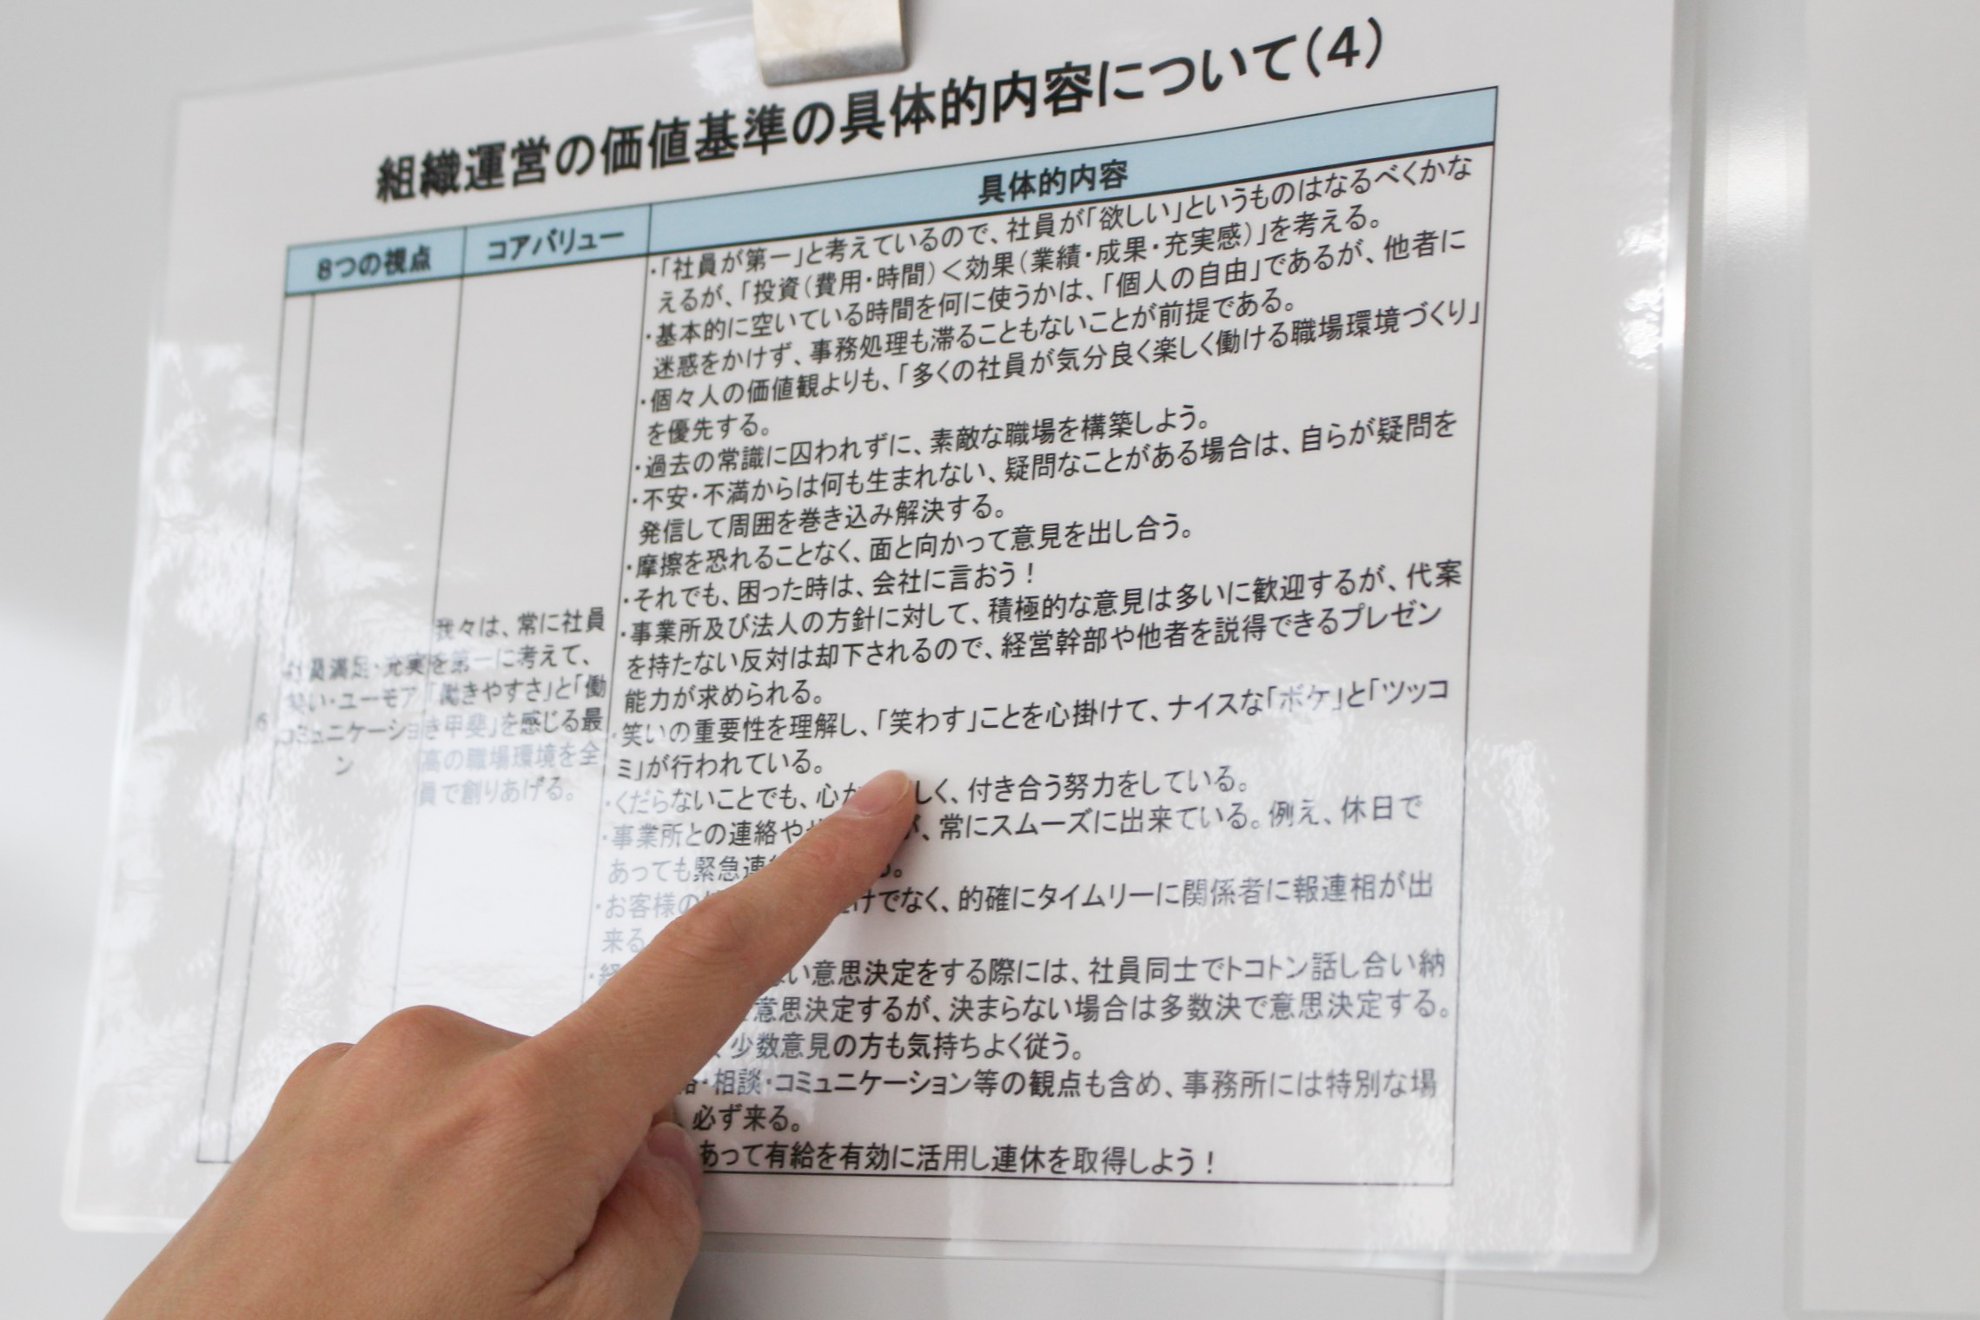 組織運営の価値基準の具体的内容について(4)
8つの視点
コアバリュー
具体的内容
6
社員満足・充実
笑い・ユーモア
コミュニケーショ
ン
我々は、常に社員
を第一に考えて、
「働きやすさ」と「働
き甲斐」を感じる最
高の職場環境を全
員で創りあげる。
・「社員が第一」と考えているので、社員が「欲しい」というものはなるべくかな
えるが、「投資(費用・時間)<効果(業績・成果・充実感)」を考える。
・基本的に空いている時間を何に使うかは、「個人の自由」であるが、他者に
迷惑をかけず、事務処理も滞ることもないことが前提である。
・個々人の価値観よりも、「多くの社員が気分良く楽しく働ける職場環境づくり」
を優先する。
・過去の常識に囚われずに、素敵な職場を構築しよう。
・不安・不満からは何も生まれない、疑問なことがある場合は、自らが疑問を
発信して周囲を巻き込み解決する。
・摩擦を恐れることなく、面と向かって意見を出し合う。
・それでも、困った時は、会社に言おう!
・事業所及び法人の方針に対して、積極的な意見は多いに歓迎するが、代案
を持たない反対は却下されるので、経営幹部や他者を説得できるプレゼン
能力が求められる。
・笑いの重要性を理解し、「笑わす」ことを心掛けて、ナイスな「ボケ」と「ツッコ
ミ」が行われている。
・くだらないことでも、心 しく、付き合う努力をしている。
・事業所との連絡や 、常にスムーズに出来ている。例え、休日で
あっても緊急連 る。
・お客様の けでなく、的確にタイムリーに関係者に報連相が出
来る
・経 い意思決定をする際には、社員同士でトコトン話し合い納
意思決定するが、決まらない場合は多数決で意思決定する。
、少数意見の方も気持ちよく従う。
・相談・コミュニケーション等の観点も含め、事務所には特別な場
必ず来る。
あって有給を有効に活用し連休を取得しよう!